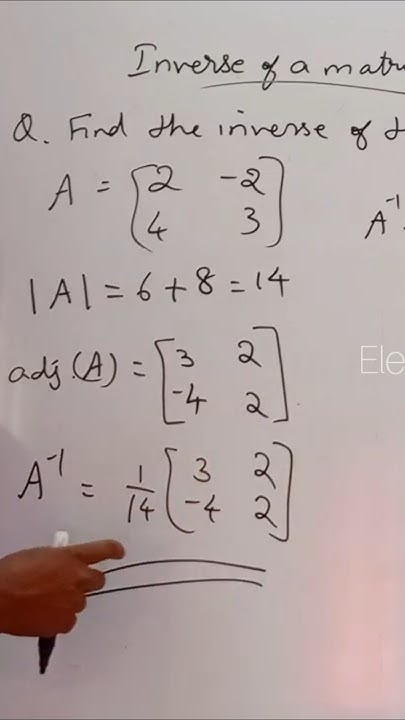 Inverse of a matr
Q. Find the inverse of
A = [2 -2
4 3]
A⁻¹
|A| = 6 + 8 = 14
adj.(A) = [3 2
-4 2]
Ele
A⁻¹ = 1/14 [3 2
-4 2]